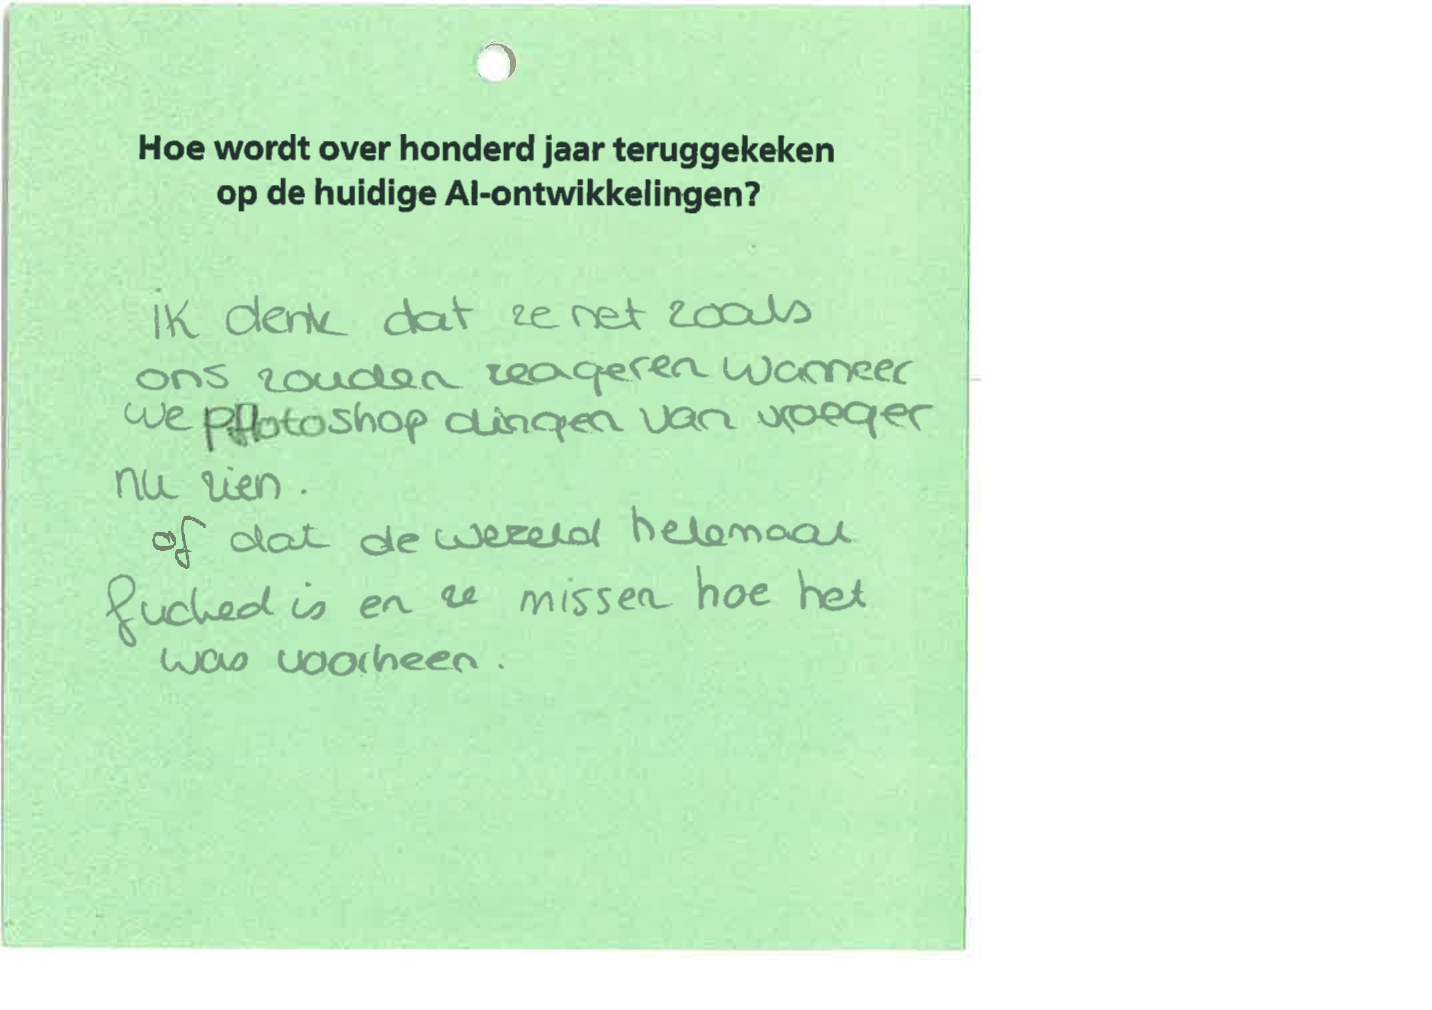 Hoe wordt over honderd jaar teruggekeken
op de huidige AI-ontwikkelingen?
ik denk dat ze net zoals
ons zouden reageren wanneer
we photoshop dingen van vroeger
nu zien.
of dat de wereld helemaal
fucked is en ze missen hoe het
was voorheen.